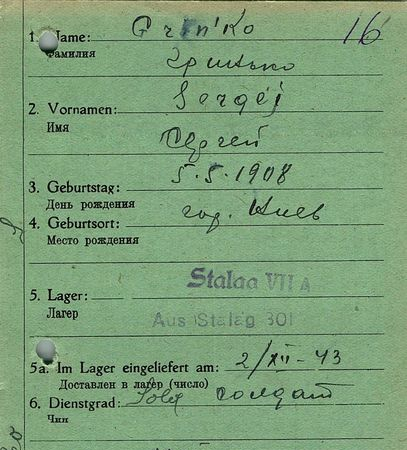 1. Name: Grin'Ko 16
Фамилия Гринько
2. Vornamen: Sergej
Имя Сергей
3. Geburtstag: 5.5.1908
День рождения
4. Geburtsort: гор. Киев
Место рождения
Stalag VII A
5. Lager:
Лагерь
Aus Stalag 301
5a. Im Lager eingeliefert am: 2/XII-43
Доставлен в лагерь (число)
6. Dienstgrad: Sold солдат
Чин